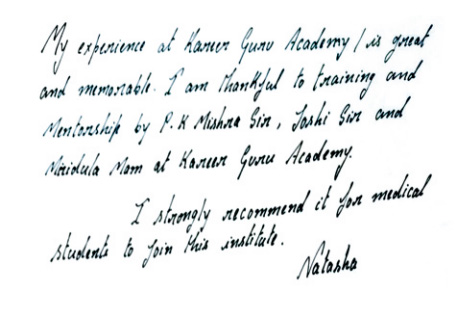 My experience at Kareer Guru Academy / is great
and memorable. I am thankful to training and
Mentorship by P.K Mishra Sir, Joshi Sir and
Mridula Mam at Kareer Guru Academy.
I strongly recommend it for medical
students to join this institute.
Natasha